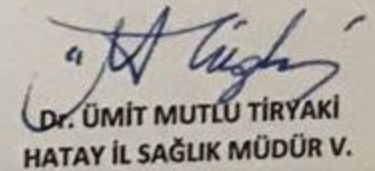 Dr. ÜMİT MUTLU TİRYAKİ
HATAY İL SAĞLIK MÜDÜR V.